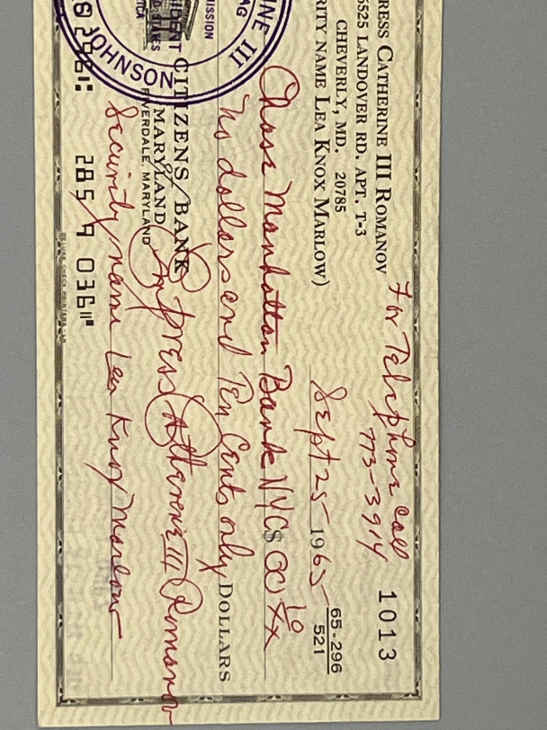 RESS CATHERINE III ROMANOV
6525 LANDOVER RD. APT. T-3
CHEVERLY, MD. 20785
RITY NAME LEA KNOX MARLOW)
For Telephone Call
773-3914
1013
Sept 25 1965
65-296
521
Chase Manhattan Bank NYC $ 00 10/xx
No dollars and Ten Cents only DOLLARS
CITIZENS BANK
MARYLAND
RIVERDALE, MARYLAND
Empress Catherine III Romanov
Security name Lea Knox Marlow
285 9 036
JOHNSON
INE III